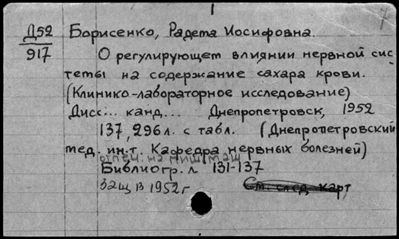 Д52
917
Борисенко, Радета Иосифовна.
О регулирующем влиянии нервной сис-
темы на содержание сахара крови.
(Клинико-лабораторное исследование)
Дисс... канд... Днепропетровск, 1952
137, 296л. с табл. (Днепропетровский
мед. ин-т. Кафедра нервных болезней)
отпеч. на пиш. маш
Библиогр. л 131-137
Защ в 1952г
См. след. карт